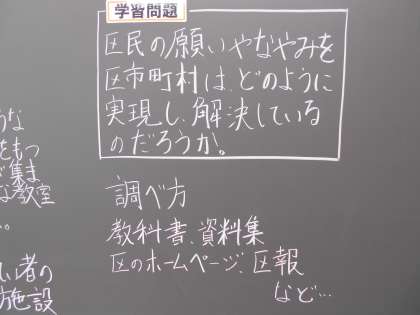 学習問題
区民の願いやなやみを
区市町村は、どのように
実現し、解決している
のだろうか。
調べ方
教科書、資料集
区のホームページ、区報
など…
うな
をもつ
が集ま
な教室
い者の
施設